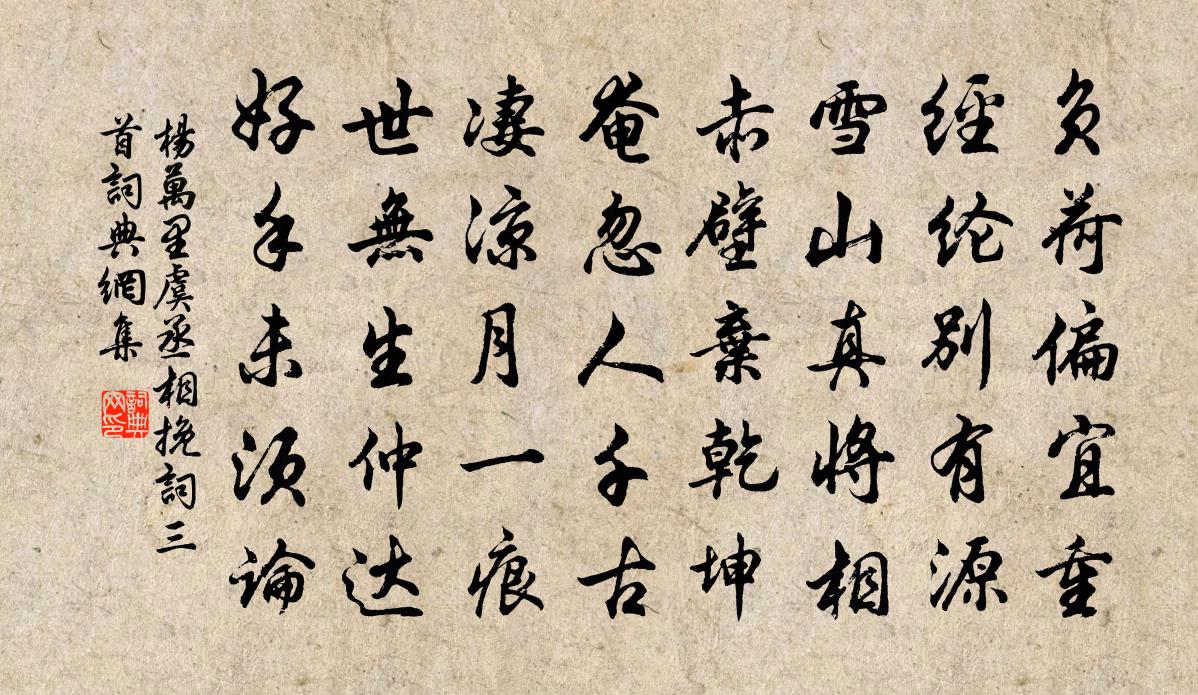 负荷偏宜重
經纶别有源
雪山真將相
赤壁棄乾坤
奄忽人千古
凄凉月一痕
世無生仲达
好手未須論
楊萬里虞丞相挽詞三
首詞典網集
詞典
网印